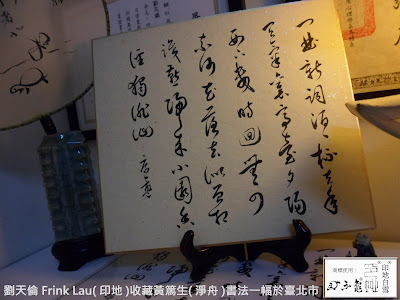 一曲新詞酒一杯去年
天氣舊亭臺夕陽
西下幾時回無可
奈何花落去似曾相
識燕歸來小園香
徑獨徘徊
劉天倫 Frink Lau( 印地 )收藏黃篤生( 淨舟 )書法一幅於臺北市
商標使用：
印地白雪